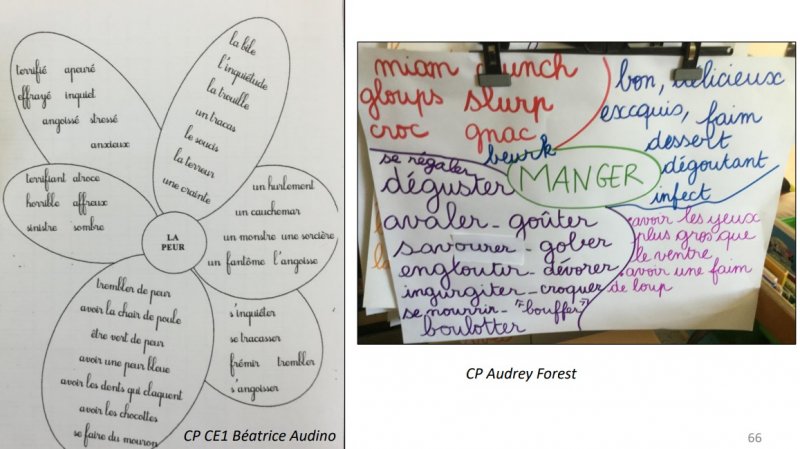 terrifié apeuré
effrayé inquiet
angoissé stressé
anxieux
la bile
l'inquiétude
la trouille
un tracas
le soucis
la terreur
une crainte
terrifiant atroce
horrible affreux
sinistre sombre
LA
PEUR
un hurlement
un cauchemar
un monstre une sorcière
un fantôme l'angoisse
trembler de peur
avoir la chair de poule
être vert de peur
avoir une peur bleue
avoir les dents qui claquent
avoir les chocottes
se faire du mouron
s'inquiéter
se tracasser
frémir trembler
s'angoisser
CP CE1 Béatrice Audino
miam crunch
gloups slurp
croc gnac
beurk
bon, délicieux
exccquis, faim
dessert
dégoutant
infect
MANGER
se régaler
déguster
avaler - goûter
savourer - gober
engloutir - dévorer
ingurgiter - croquer
se nourrir - "bouffer"
boulotter
avoir les yeux
plus gros que
le ventre
avoir une faim
de loup
CP Audrey Forest
66